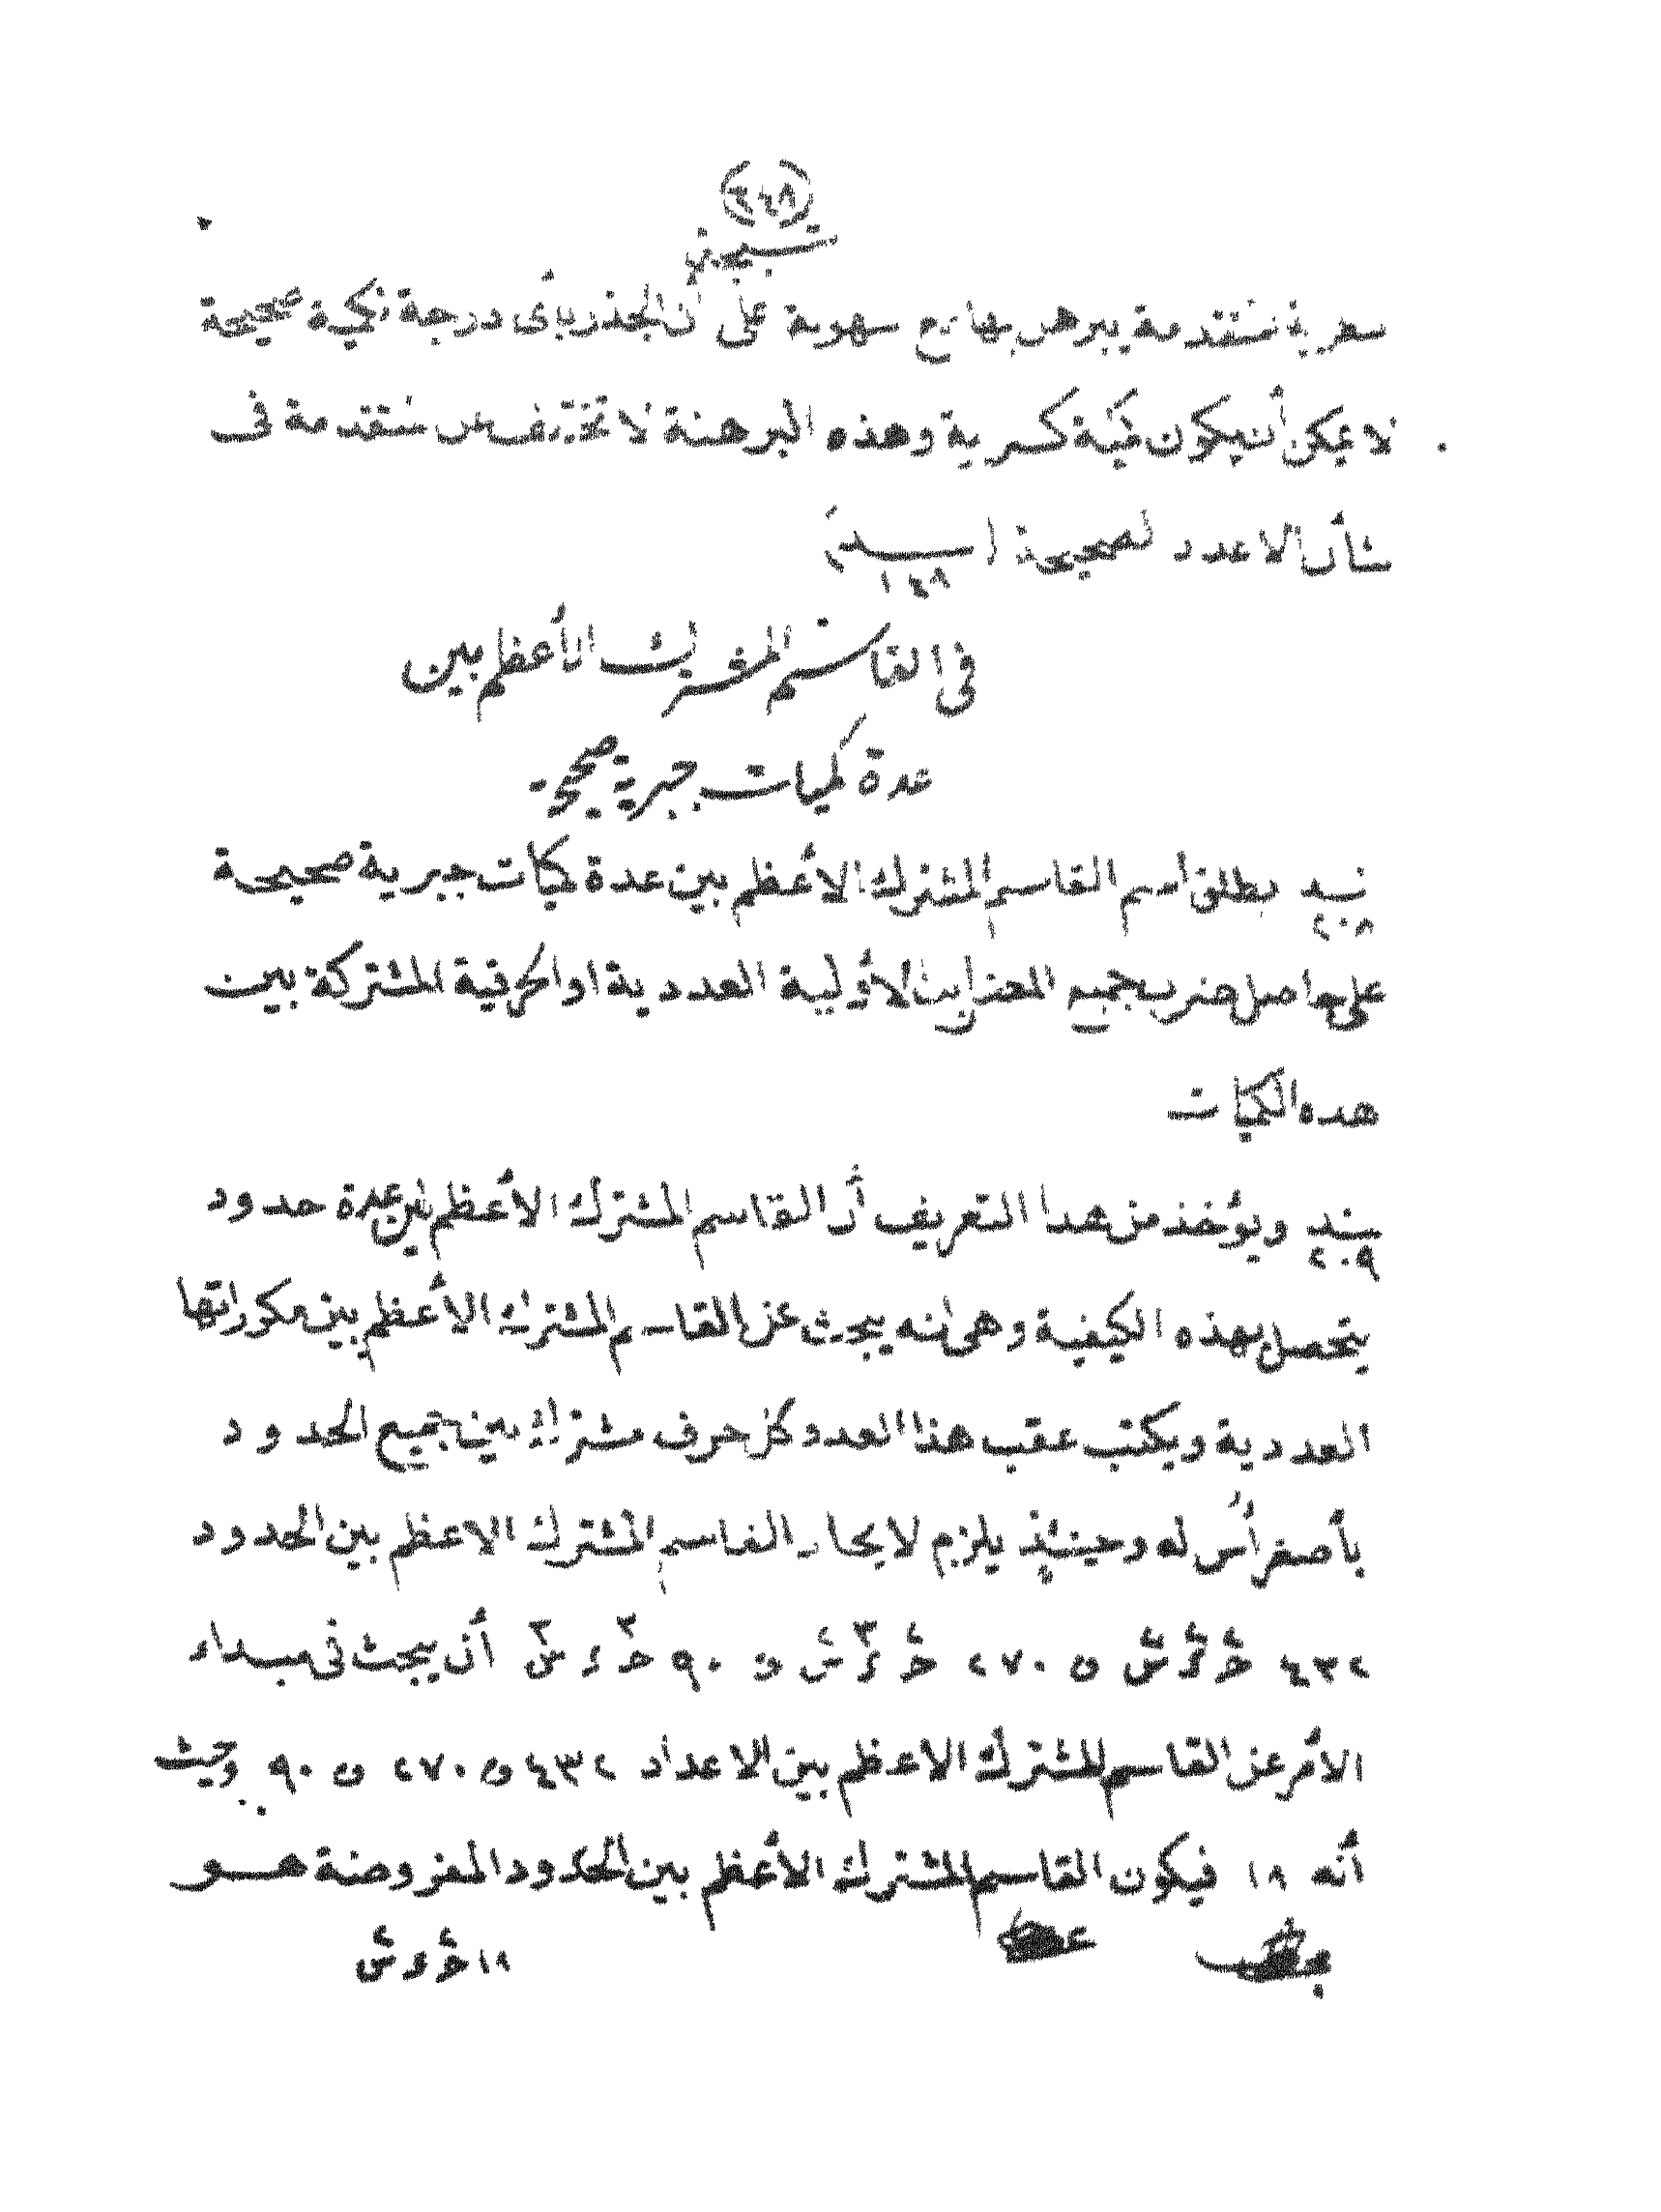 (٢٤٨)
نتيجة
نظرية متقدمة يبرهن بها مع سهولة على ان الجذر بأى درجة لكمية صحيحة
لا يمكن أن يكون كمية كسرية وهذه البرهنة لا تختلف عن متقدمة فى
شأن الاعداد الصحيحة ( بند ١٤٨ )
فى القاسم المشترك الأعظم بين
عدة كميات جبرية صحيحة
بند ٢٠٨ يطلق اسم القاسم المشترك الأعظم بين عدة كميات جبرية صحيحة
على حاصل ضرب جميع المضاريب الأولية العددية او الحرفية المشتركة بين
هذه الكميات
بند ٢٠٩ ويؤخذ من هذا التعريف أن القاسم المشترك الأعظم بين عدة حدود
يتحصل بهذه الكيفية وهى أنه يبحث عن القاسم المشترك الأعظم بين مكرراتها
العددية ويكتب عقب هذا العدد كل حرف مشترك بين جميع الحدود
بأصغر أس له وحينئذ يلزم لايجاد القاسم المشترك الاعظم بين الحدود
٤٣٢ ن ٢٧٠ ن ٩٠ أن يبحث فى مبداء
الأمر عن القاسم المشترك الاعظم بين الاعداد ٤٣٢ ن ٢٧٠ ن ٩٠ وحيث
أنه ١٨ فيكون القاسم المشترك الأعظم بين الحدود المفروضة هو
١٨ حَ ء سَ